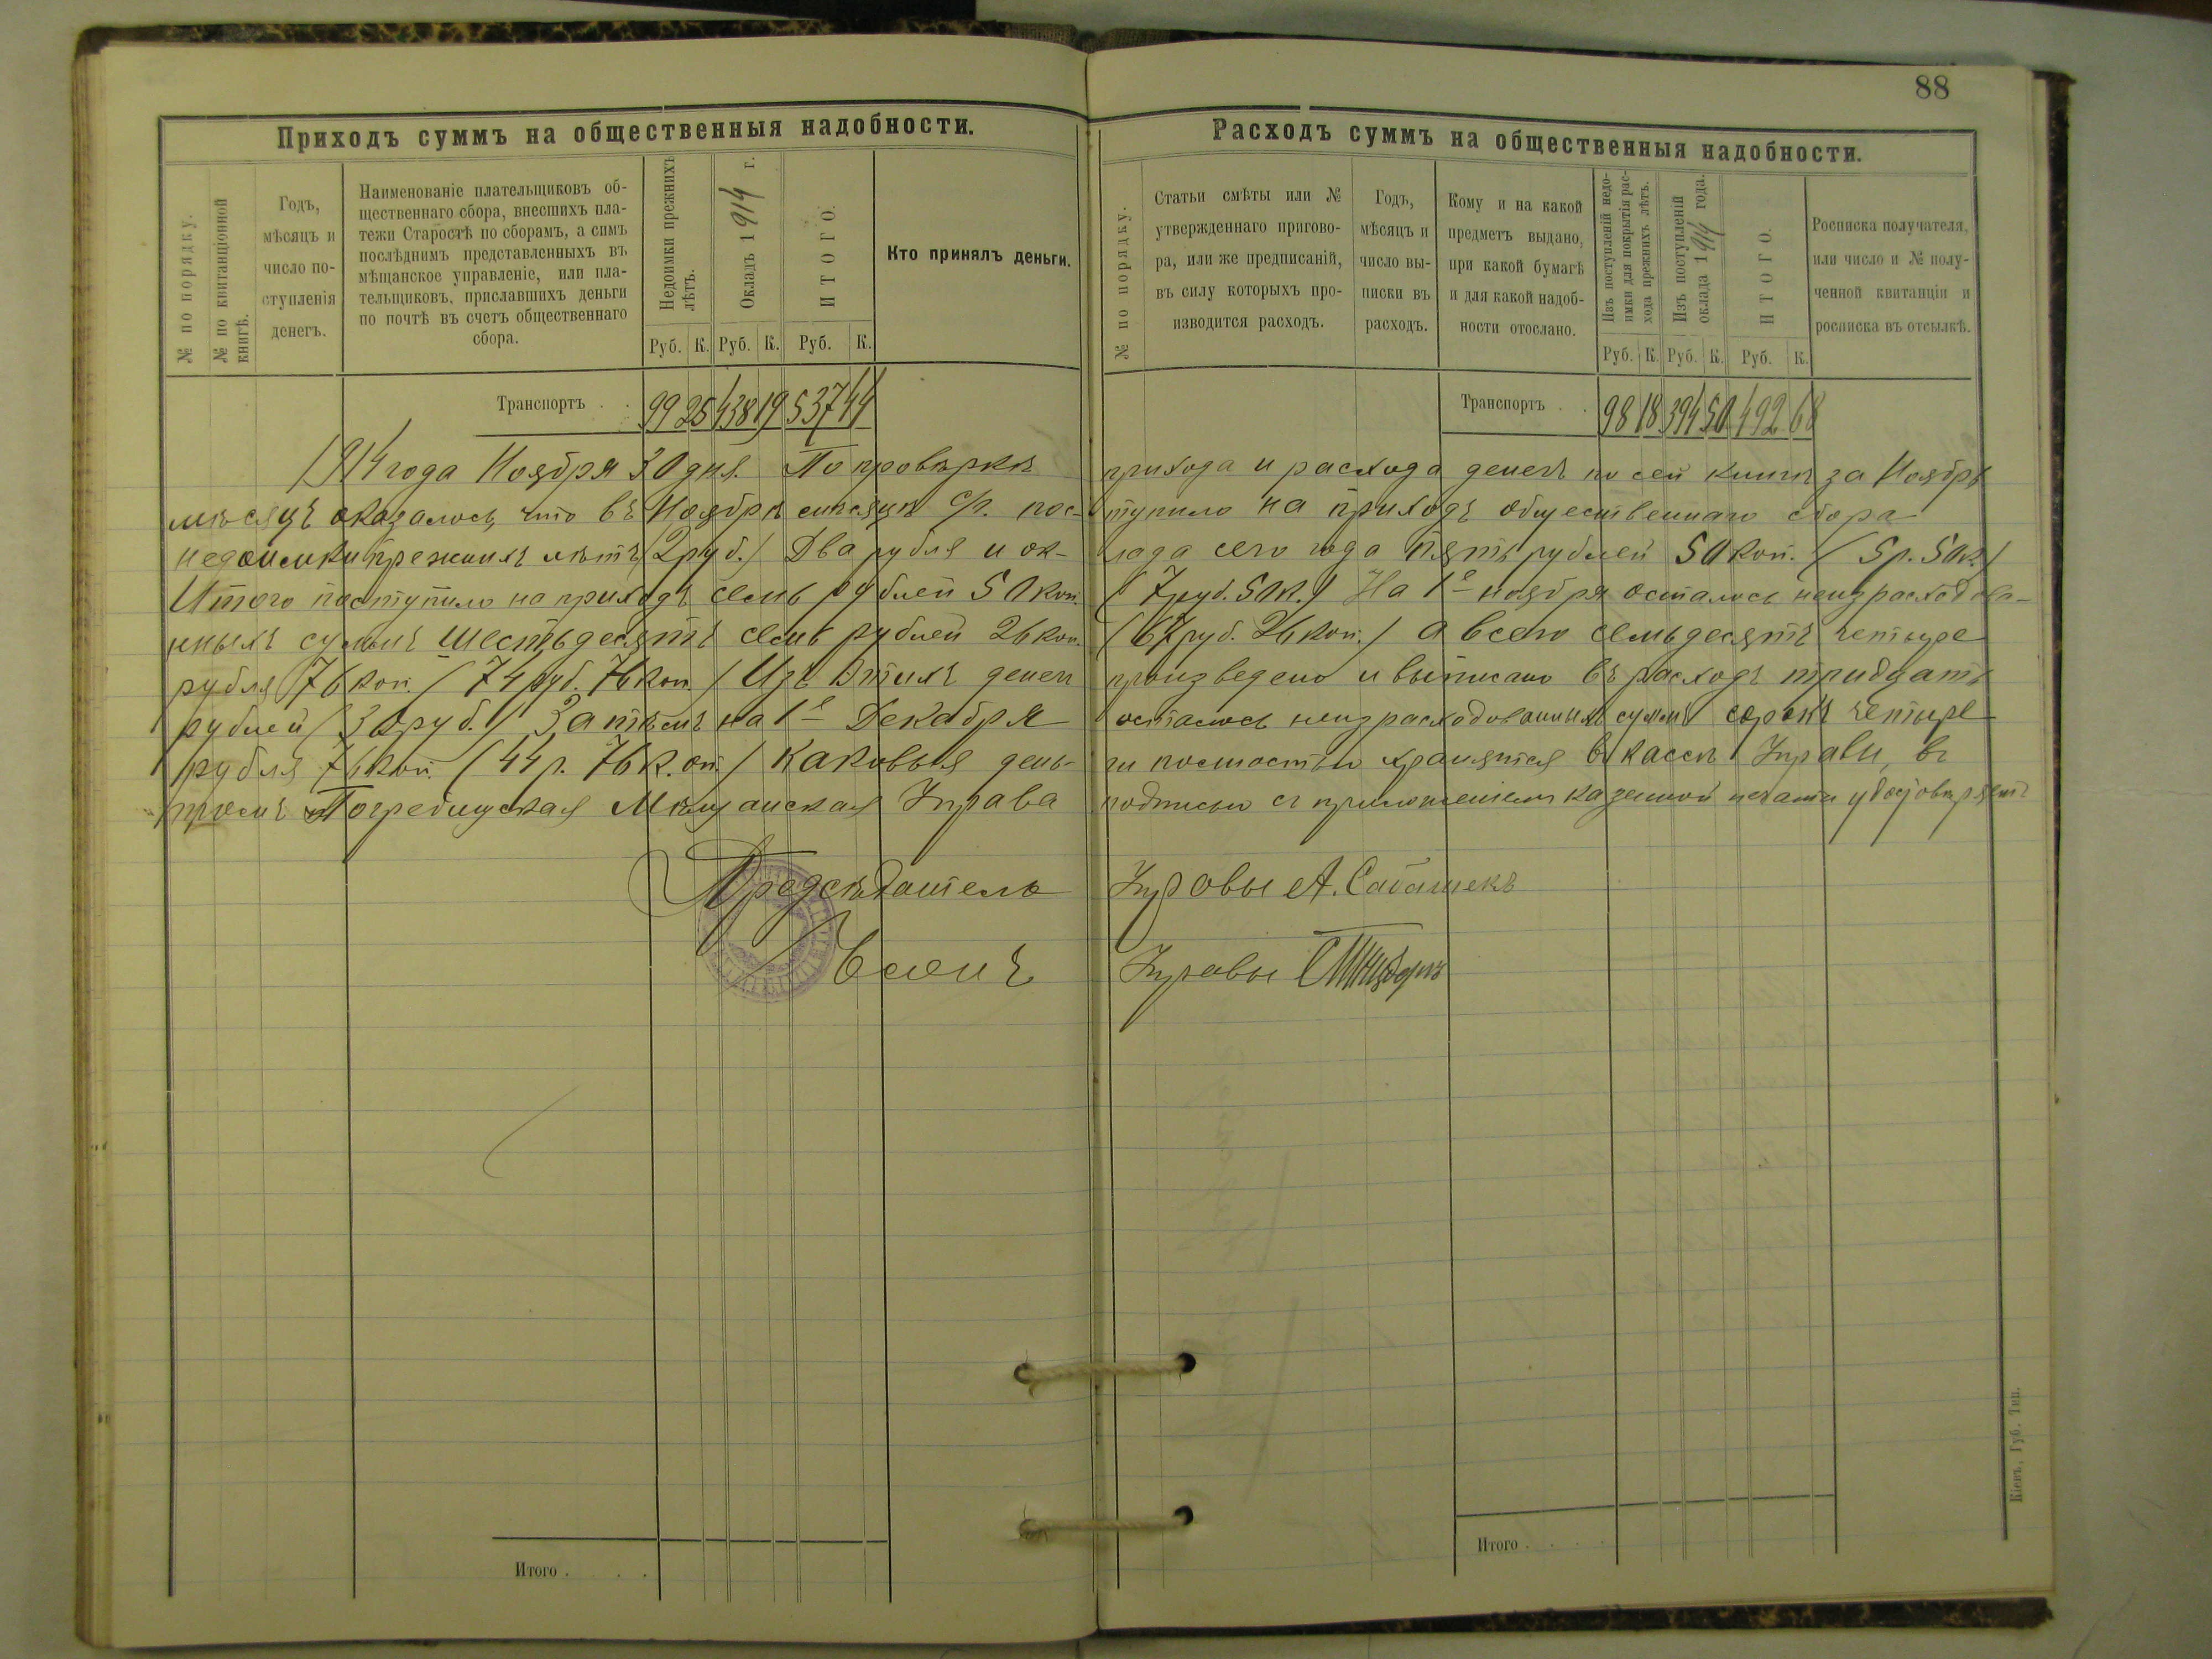 88
Приходъ суммъ на общественныя надобности.
№ по порядку.
№ по квитанціонной
книгѣ.
Годъ,
мѣсяцъ и
число по-
ступленія
денегъ.
Наименованіе плательщиковъ об-
щественнаго сбора, внесшихъ пла-
тежи Старостѣ по сборамъ, а симъ
послѣднимъ представленныхъ въ
мѣщанское управленіе, или пла-
тельщиковъ, приславшихъ деньги
по почтѣ въ счетъ общественнаго
сбора.
Недоимки прежнихъ
лѣтъ.
Окладъ 1914 г.
ИТОГО.
Руб. К. Руб. К. Руб. К.
Кто принялъ деньги.
Транспортъ . . 99 25 438 19 537 44
Расходъ суммъ на общественныя надобности.
№ по порядку.
Статьи смѣты или №
утвержденнаго пригово-
ра, или же предписаній,
въ силу которыхъ про-
изводится расходъ.
Годъ,
мѣсяцъ и
число вы-
писки въ
расходъ.
Кому и на какой
предметъ выдано,
при какой бумагѣ
и для какой надоб-
ности отослано.
Изъ поступленій недо-
имки для покрытія рас-
хода прежнихъ лѣтъ.
Изъ поступленій
оклада 1914 года.
ИТОГО.
Руб. К. Руб. К. Руб. К.
Росписка получателя,
или число и № полу-
ченной квитанціи и
росписка въ отсылкѣ.
Транспортъ . . 98 18 394 50 492 68
1914 года Ноября 30 дня. По провѣркѣ прихода и расхода денегъ по сей книгѣ за Ноябрь
мѣсяцъ оказалось, что въ Ноябрѣ мѣсяцѣ с/г. пос- тупило на приходъ общественнаго сбора
недоимки прежнихъ лѣтъ (2 руб.) Два рубля и ок- лада сего года пять рублей 50 коп. (5 р. 50 к.)
Итого поступило на приходъ семь рублей 50 коп. (7 руб. 50 к.) На 1е ноября осталось неизрасходова-
нныхъ суммъ шестьдесятъ семь рублей 26 коп. (67 руб. 26 коп.) а всего семьдесятъ четыре
рубля 76 коп. (74 руб. 76 коп.) Изъ этихъ денегъ произведено и выписано въ расходъ тридцать
рублей (30 руб.) Затѣмъ на 1е Декабря осталось неизрасходованныхъ суммъ сорокъ четыре
рубля 76 коп. (44 р. 76 к. оп.) каковыя день- ги полностью хранятся въ кассѣ Управы, въ
чемъ Погребищская Мѣщанская Управа подписью съ приложеніемъ казенной печати удостовѣряетъ
Предсѣдатель Управы А. Сабашекъ
Членъ Управы
Итого . . . .
Итого . . . .
Кіевъ, Губ. Тип.